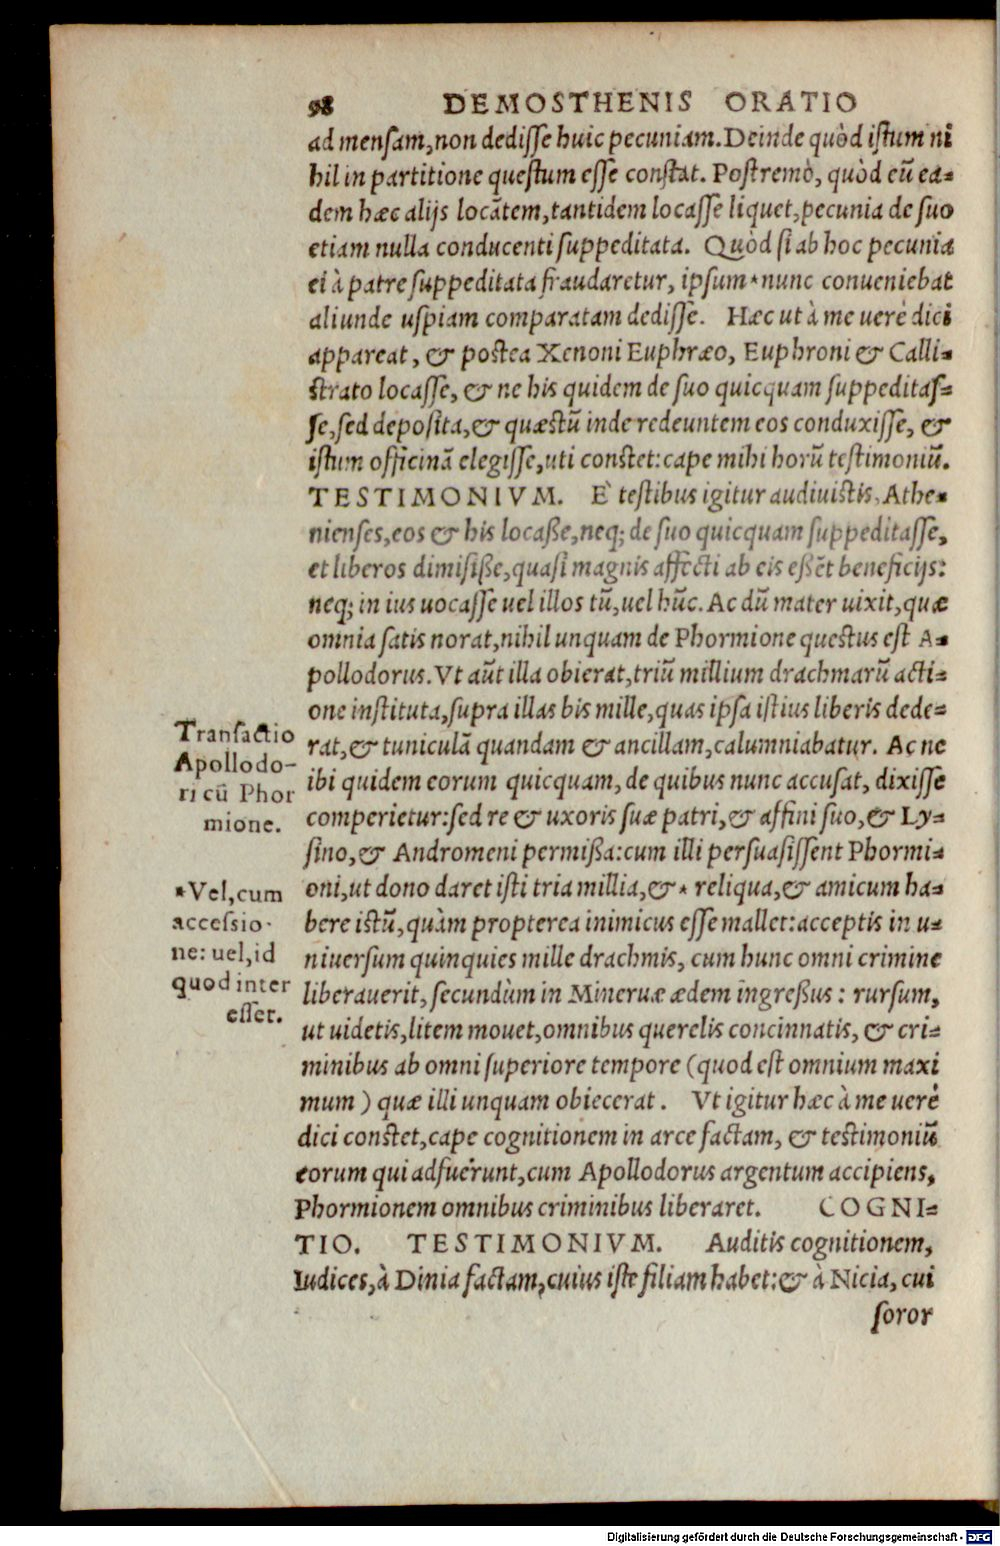 98 DEMOSTHENIS ORATIO
ad mensam, non dedisse huic pecuniam. Deinde quòd istum ni
hil in partitione questum esse constat. Postremò, quòd eũ ea-
dem hæc alijs locãtem, tantidem locasse liquet, pecunia de suo
etiam nulla conducenti suppeditata. Quòd si ab hoc pecunia
ei à patre suppeditata fraudaretur, ipsum * nunc conueniebat
aliunde uspiam comparatam dedisse. Hæc ut à me uerè dici
appareat, & postea Xenoni Euphræo, Euphroni & Calli-
strato locasse, & ne his quidem de suo quicquam suppeditas-
se, sed deposita, & quæstũ inde redeuntem eos conduxisse, &
istum officinã elegisse, uti constet: cape mihi horũ testimoniũ.
TESTIMONIVM. È testibus igitur audiuistis, Athe-
nienses, eos & his locaße, neq; de suo quicquam suppeditasse,
et liberos dimisiße, quasi magnis affecti ab eis eßẽt beneficijs:
neq; in ius uocasse uel illos tũ, uel hũc. Ac dũ mater uixit, quæ
omnia satis norat, nihil unquam de Phormione questus est A-
pollodorus. Vt aũt illa obierat, triũ millium drachmarũ acti-
one instituta, supra illas bis mille, quas ipsa istius liberis dede-
rat, & tuniculã quandam & ancillam, calumniabatur. Ac ne
ibi quidem eorum quicquam, de quibus nunc accusat, dixisse
comperietur: sed re & uxoris suæ patri, & affini suo, & Ly-
sino, & Andromeni permißa: cum illi persuasissent Phormi-
oni, ut dono daret isti tria millia, & * reliqua, & amicum ha-
bere istũ, quàm propterea inimicus esse mallet: acceptis in u-
niuersum quinquies mille drachmis, cum hunc omni crimine
liberauerit, secundùm in Mineruæ ædem ingreßus: rursum,
ut uidetis, litem mouet, omnibus querelis concinnatis, & cri-
minibus ab omni superiore tempore (quod est omnium maxi
mum) quæ illi unquam obiecerat. Vt igitur hæc à me uerè
dici constet, cape cognitionem in arce factam, & testimoniũ
eorum qui adfuerunt, cum Apollodorus argentum accipiens,
Phormionem omnibus criminibus liberaret. COGNI-
TIO. TESTIMONIVM. Auditis cognitionem,
Iudices, à Dinia factam, cuius iste filiam habet: & à Nicia, cui
soror
Transactio
Apollodo-
ri cũ Phor
mione.
*Vel, cum
accessio-
ne: uel, id
quod inter
esset.
Digitalisierung gefördert durch die Deutsche Forschungsgemeinschaft - DFG